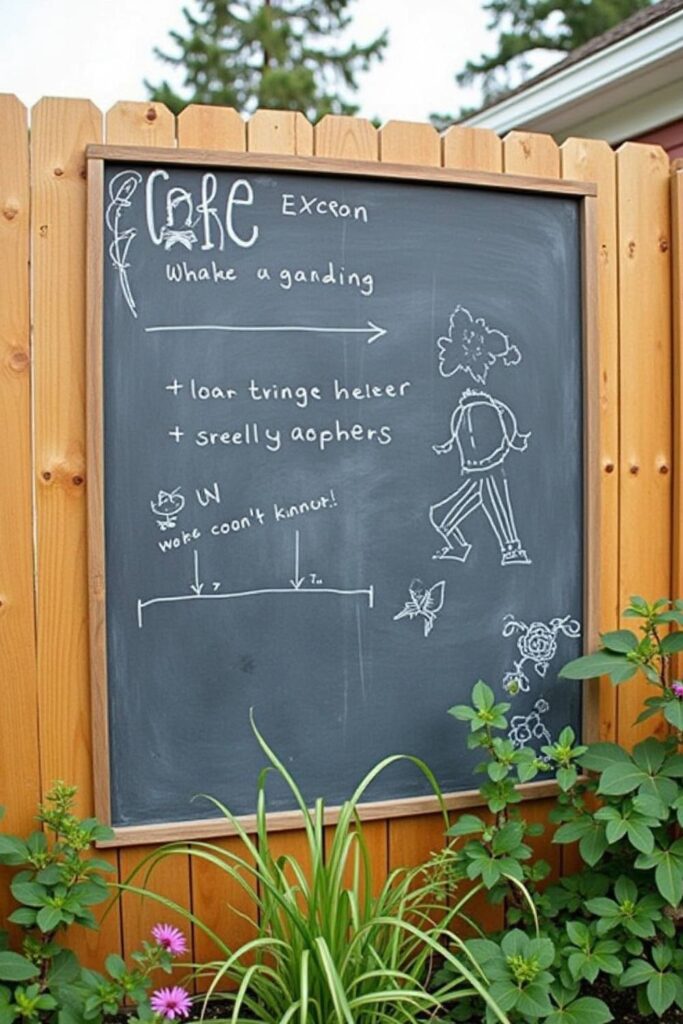 Cafe Excron
Whake a ganding
+ loar tringe heleer
+ sreelly aophers
W
woke coon't kinnut!